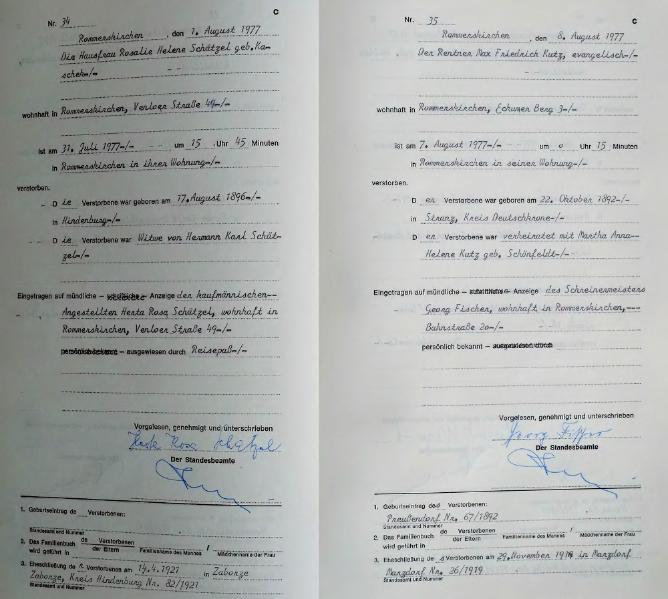 C
Nr. 34
Rommerskirchen, den 1. August 1977
Die Hausfrau Rosalie Helene Schätzel geb. Ka-
schek-/-
- -
wohnhaft in Rommerskirchen, Venloer Straße 49-/-
ist am 31. Juli 1977-/- - - um 15 Uhr 45 Minuten
in Rommerskirchen in ihrer Wohnung-/-
verstorben.
D ie Verstorbene war geboren am 17. August 1896-/-
in Hindenburg-/-
D ie Verstorbene war Witwe von Hermann Karl Schät-
zel-/-
Eingetragen auf mündliche – schriftliche – Anzeige der kaufmännischen--
Angestellten Herta Rosa Schätzel, wohnhaft in
Rommerskirchen, Venloer Straße 49-/-
persönlich bekannt – ausgewiesen durch Reisepaß-/-
Vorgelesen, genehmigt und unterschrieben
Herta Rosa Schätzel
Der Standesbeamte
1. Geburtseintrag de Verstorbenen:
Standesamt und Nummer
2. Das Familienbuch de Verstorbenen
der Eltern
wird geführt in Familienname des Mannes / Mädchenname der Frau
3. Eheschließung de r Verstorbenen am 19.4.1921 in Zaborze
Zaborze, Kreis Hindenburg Nr. 82/1921
Standesamt und Nummer
C
Nr. 35
Rommerskirchen, den 8. August 1977
Der Rentner Max Friedrich Kutz, evangelisch-/-
- -
wohnhaft in Rommerskirchen, Eckumer Berg 3-/-
ist am 7. August 1977-/- um 0 Uhr 15 Minuten
in Rommerskirchen in seiner Wohnung-/-
verstorben.
D er Verstorbene war geboren am 22. Oktober 1892-/-
in Stranz, Kreis Deutschkrone-/-
D er Verstorbene war verheiratet mit Martha Anna--
Helene Kutz geb. Schönfeldt-/-
Eingetragen auf mündliche – schriftliche – Anzeige des Schreinermeisters
Georg Fischer, wohnhaft in Rommerskirchen,---
Bahnstraße 20-/-
persönlich bekannt – ausgewiesen durch
Vorgelesen, genehmigt und unterschrieben
Georg
Der Standesbeamte
1. Geburtseintrag des Verstorbenen:
Preußendorf Nr. 67/1892
Standesamt und Nummer
2. Das Familienbuch de Verstorbenen
der Eltern
wird geführt in Familienname des Mannes / Mädchenname der Frau
3. Eheschließung de s Verstorbenen am 29. November 1919 in Marzdorf
Marzdorf Nr. 26/1919
Standesamt und Nummer